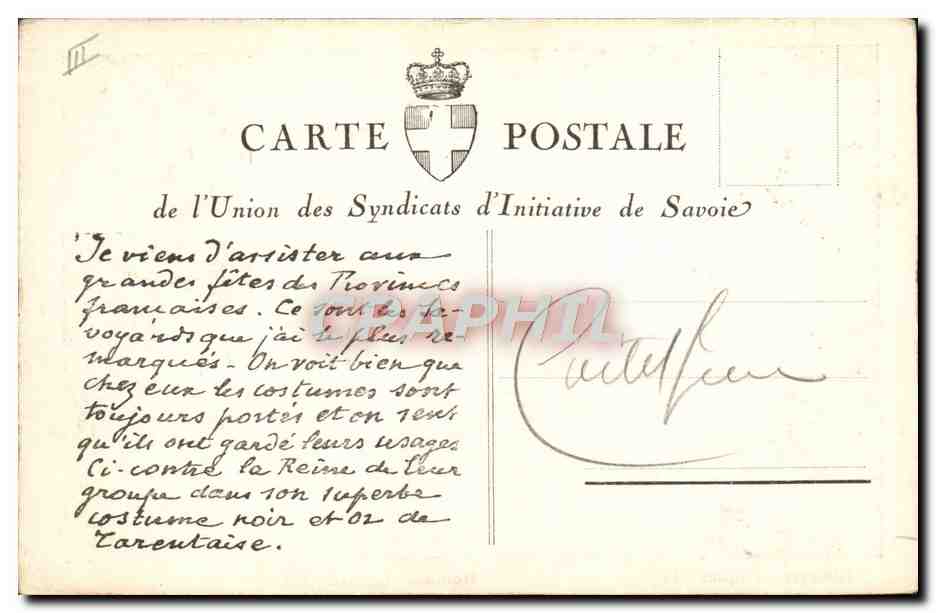 III
CARTE POSTALE
de l'Union des Syndicats d'Initiative de Savoie
Je viens d'assister aux
grandes fêtes des Provinces
françaises. Ce sont les Sa-
voyards que j'ai le plus re-
marqués - On voit bien que
chez eux les costumes sont
toujours portés et on sent
qu'ils ont gardé leurs usages
Ci-contre la Reine de leur
groupe dans son superbe
costume noir et or de
Tarentaise.
CPAPHIL